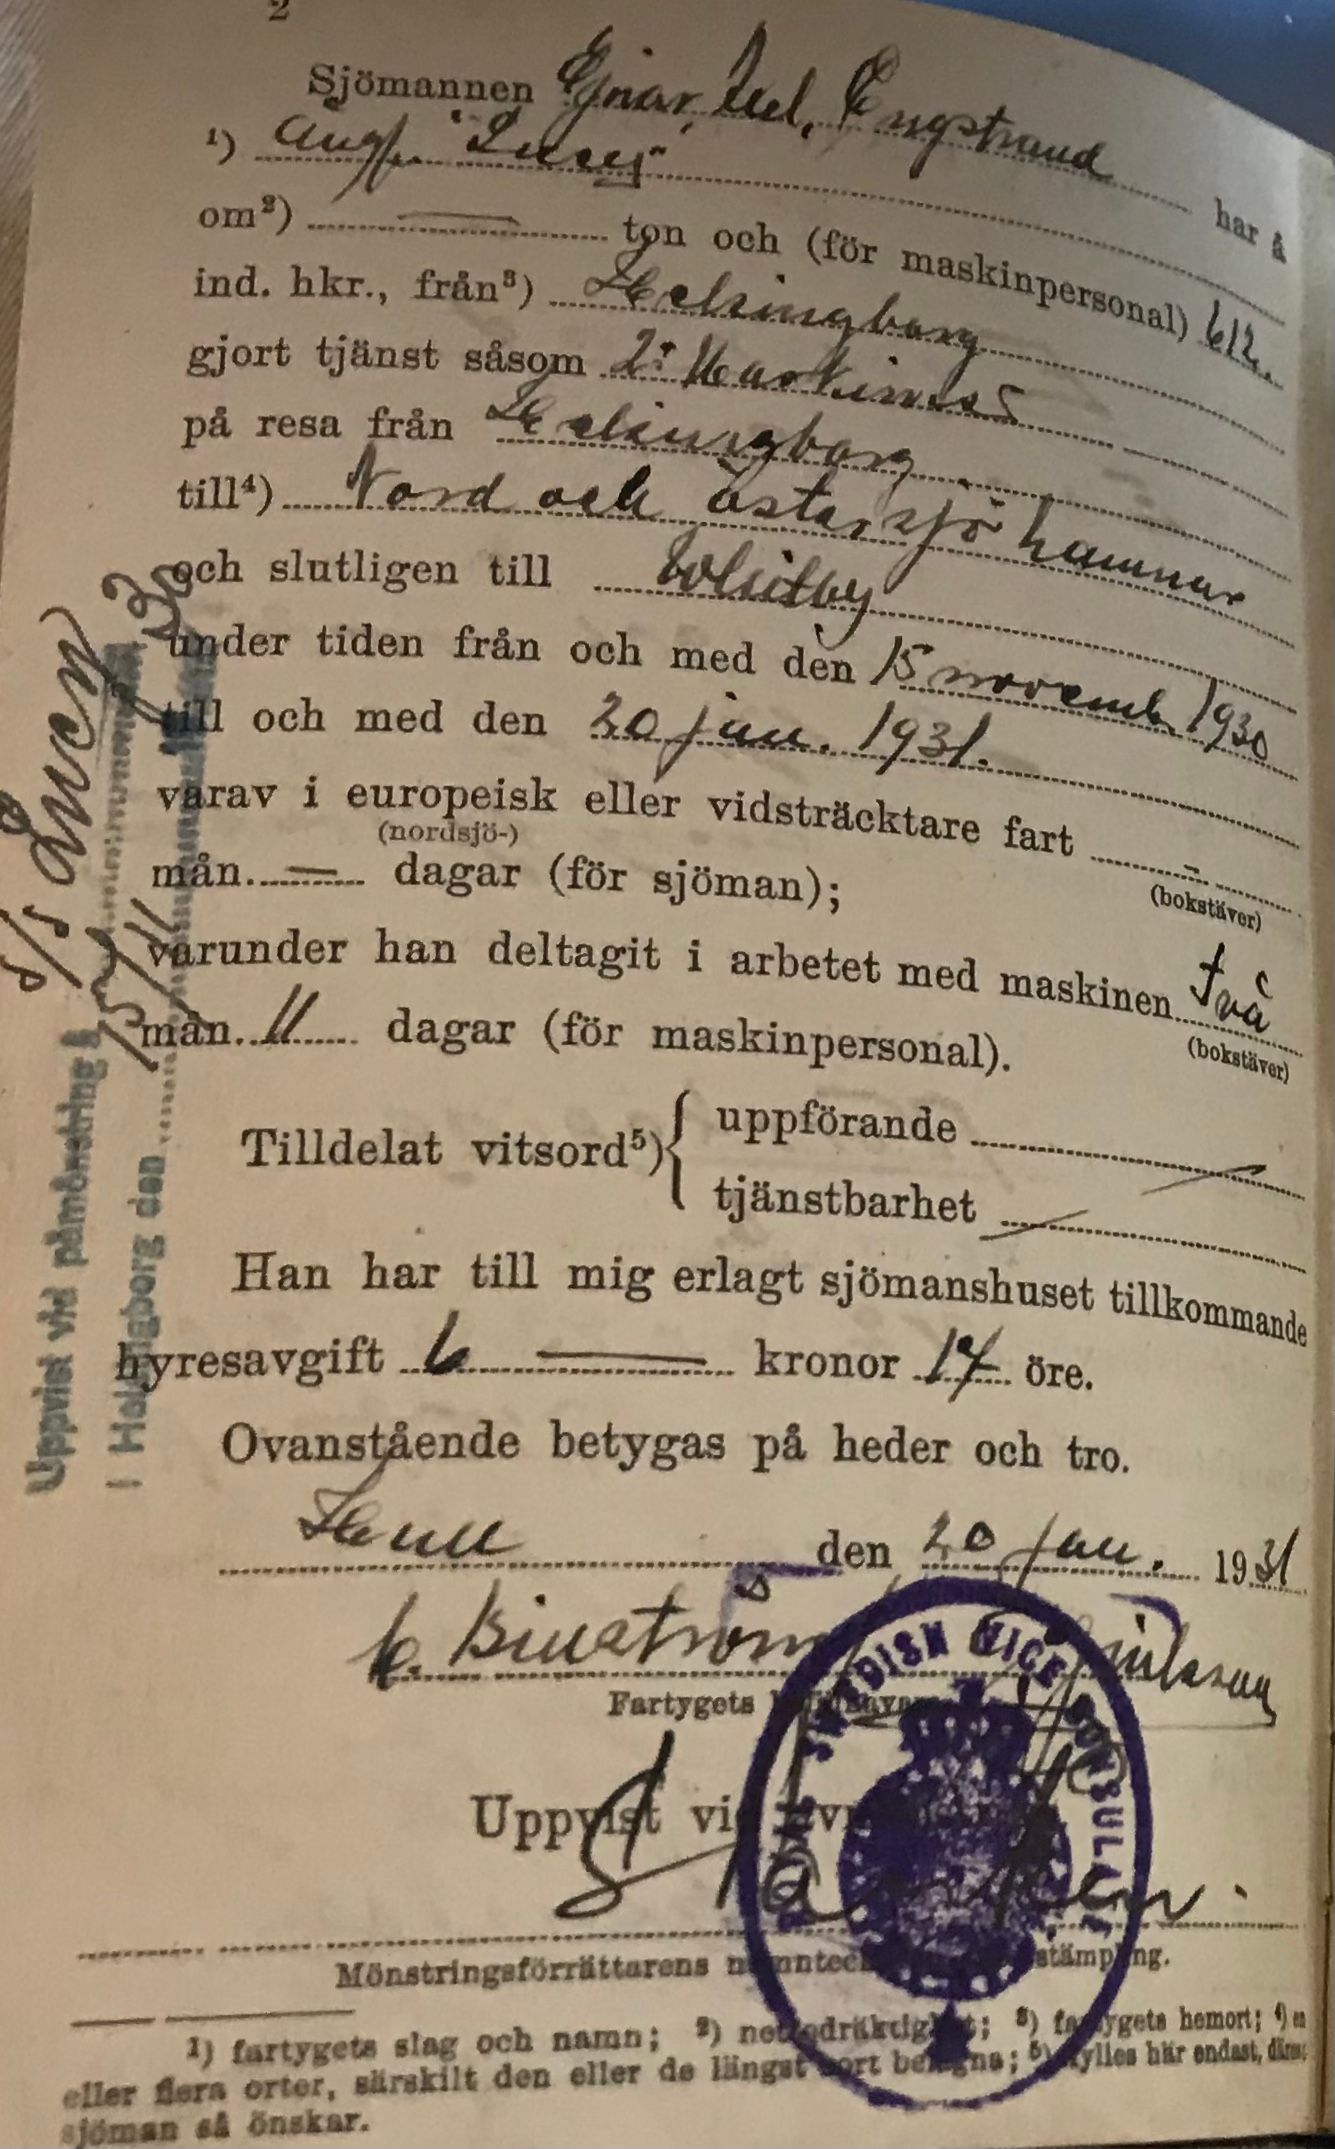 2
Sjömannen Ejnar, Engstrand
¹) Ångf. "Lucy" har å
om²) — ton och (för maskinpersonal) 612.
ind. hkr., från³) Helsingborg
gjort tjänst såsom 2. Maskinist
på resa från Helsingborg
till⁴) Nord och östersjö hamnar
och slutligen till Whitby
under tiden från och med den 15 novemb. 1930
till och med den 20 jan. 1931.
varav i europeisk eller vidsträcktare fart -
(nordsjö-) (bokstäver)
mån. — dagar (för sjöman);
varunder han deltagit i arbetet med maskinen två
(bokstäver)
mån. 11 dagar (för maskinpersonal).
Tilldelat vitsord⁵) { uppförande —
tjänstbarhet —
Han har till mig erlagt sjömanshuset tillkommande
hyresavgift 6 — kronor 14 öre.
Ovanstående betygas på heder och tro.
Hull den 20 jan. 1931
Fartygets
Uppvist vid
Mönstringsförrättarens stämpling.
¹) fartygets slag och namn; ²) nettodräktighet; ³) fartygets hemort; ⁴) en
eller flera orter, särskilt den eller de längst bort belägna; ⁵) ifylles här endast, därest
sjöman så önskar.
Uppvist vid påmönstring å s/s Lucy
i Helsingborg den 15/11 30
SWEDISH VICE CONSULATE